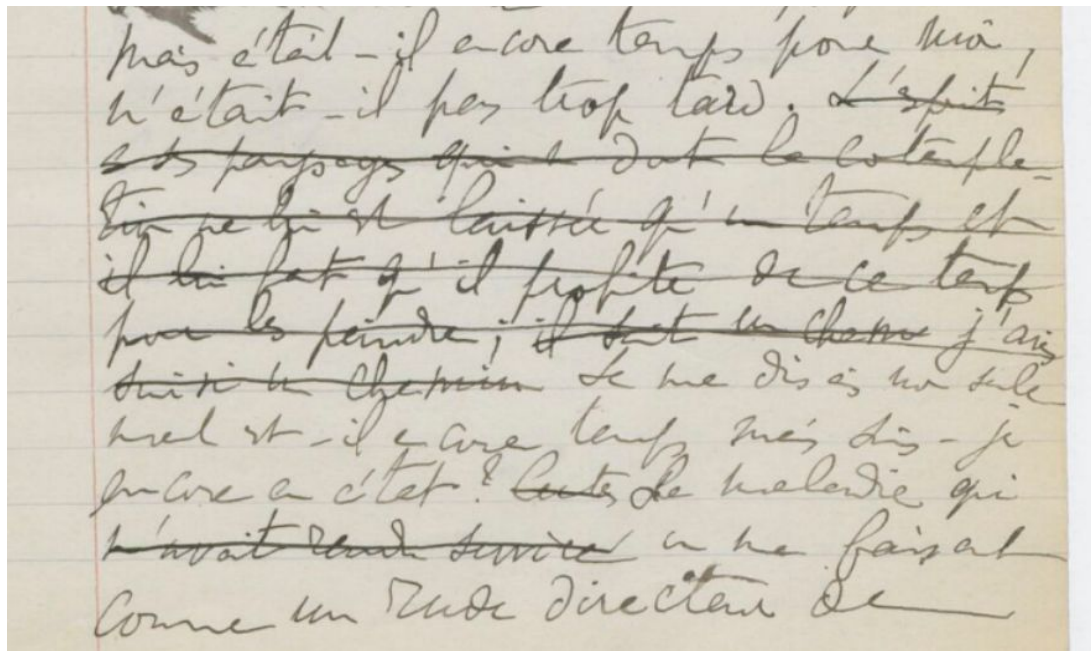 mais était-il encore temps pour moi,
n'était-il pas trop tard. L'esprit
a ses paysages dont la contempla-
tion ne lui est laissée qu'un temps et
il lui faut qu'il profite de ce temps
pour les peindre ; il sait un chemin j'avais
suivi un chemin Je me disais non seule
ment est-il encore temps mais suis-je
encore en état ? La maladie qui
m'avait rendu service en me faisant
comme un rude directeur de